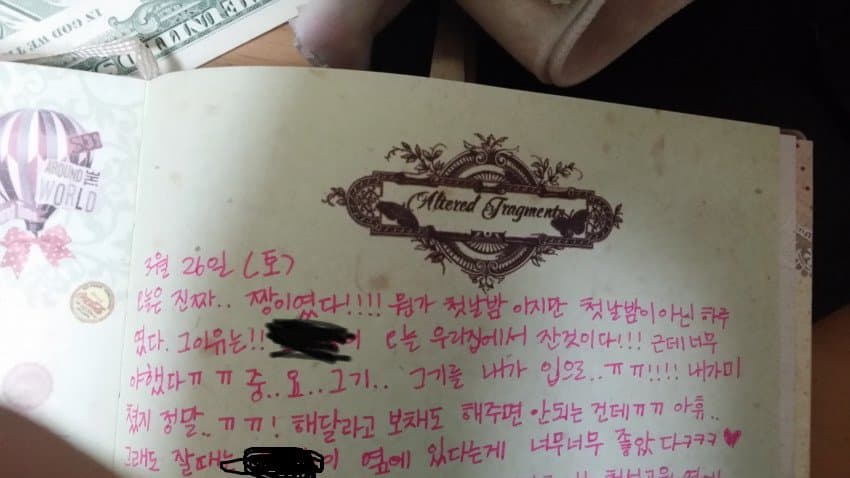 IN GOD WE
AROUND
THE
WORLD
Altered Fragments
3월 26일 (토)
오늘은 진짜.. 짱이였다!!!! 뭔가 첫날밤 이지만 첫날밤이 아닌 하루
였다. 그이유는!! 이 오늘 우리집에서 잔것이다!!! 근데 너무
야했다ㅠㅠ 중..요..그기.. 그기를 내가 입으로..ㅠㅠ!!!! 내가미
쳤지 정말..ㅠㅠ! 해달라고 보채도 해주면 안되는 건데ㅠㅠ 아휴..
그래도 잘때는 이 옆에 있다는게 너무너무 좋았다ㅋㅋㅋ♥